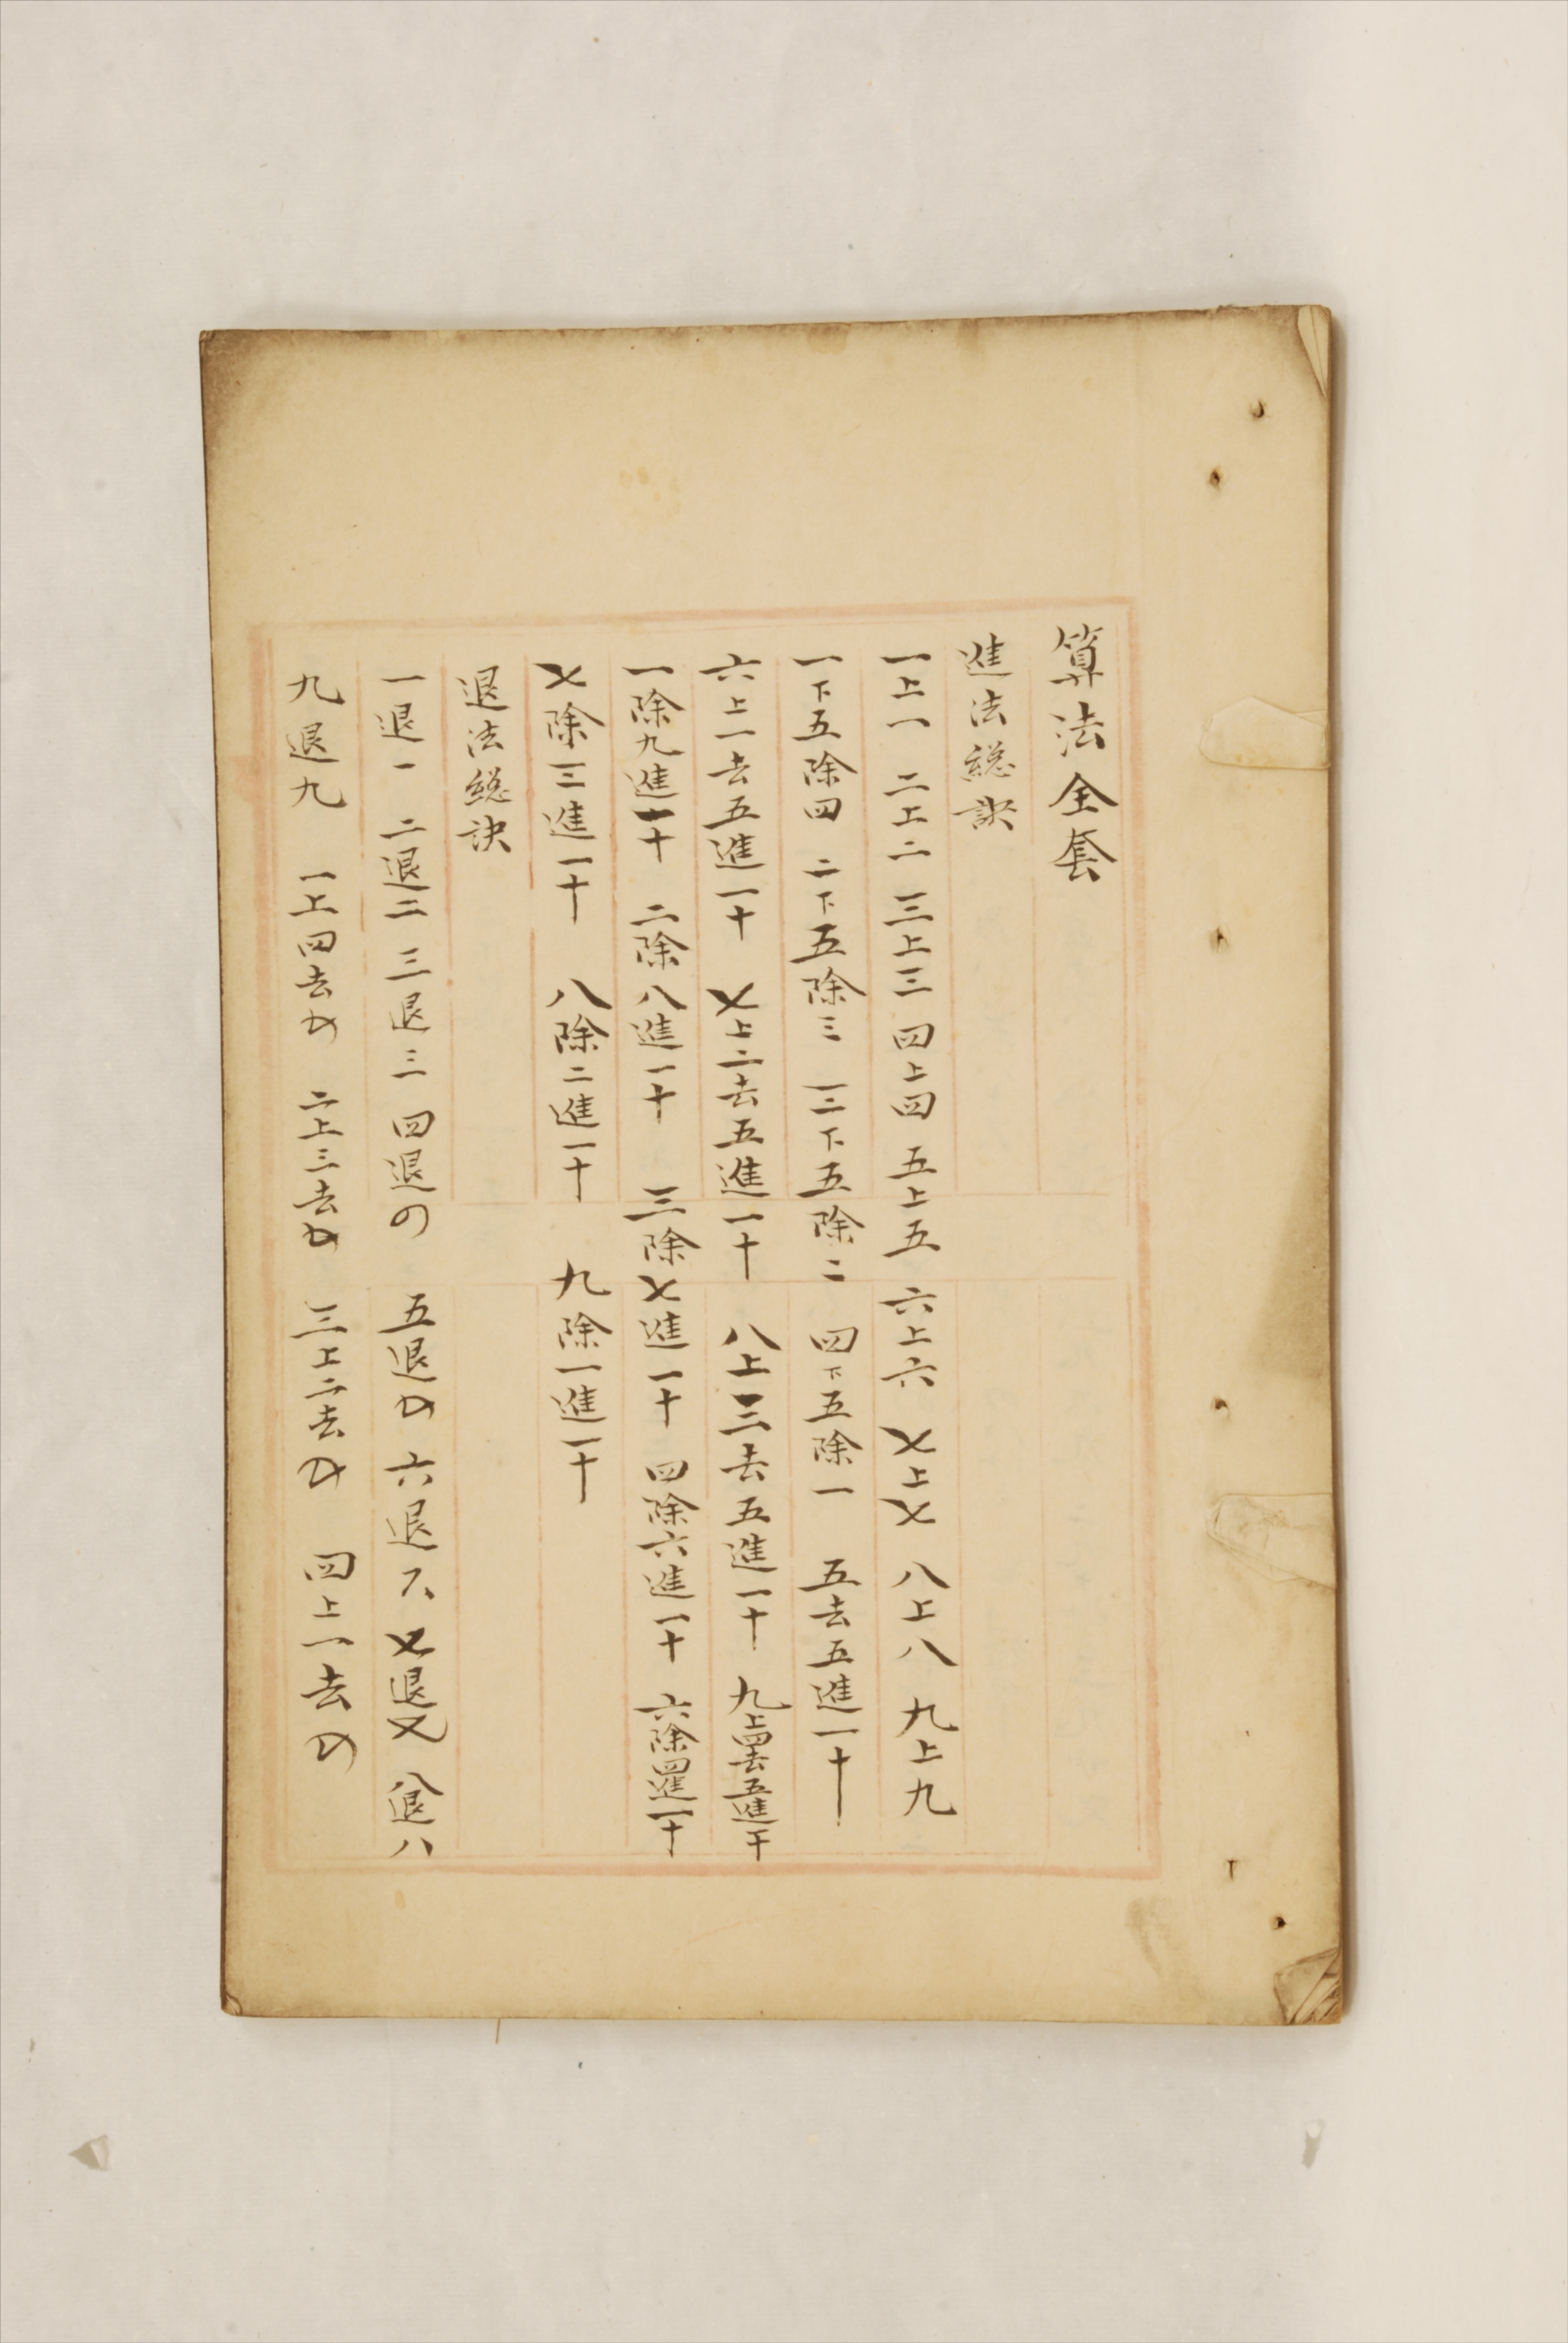 算法全套
進法総訣
一上一 二上二 三上三 四上四 五上五 六上六 七上七 八上八 九上九
一下五除四 二下五除三 三下五除二 四下五除一 五去五進一十
六上一去五進一十 七上二去五進一十 八上三去五進一十 九上四去五進一十
一除九進一十 二除八進一十 三除七進一十 四除六進一十 六除四進一十
七除三進一十 八除二進一十 九除一進一十
退法総訣
一退一 二退二 三退三 四退四 五退五 六退六 七退七 八退八
九退九 一上四去五 二上三去五 三上二去五 四上一去五